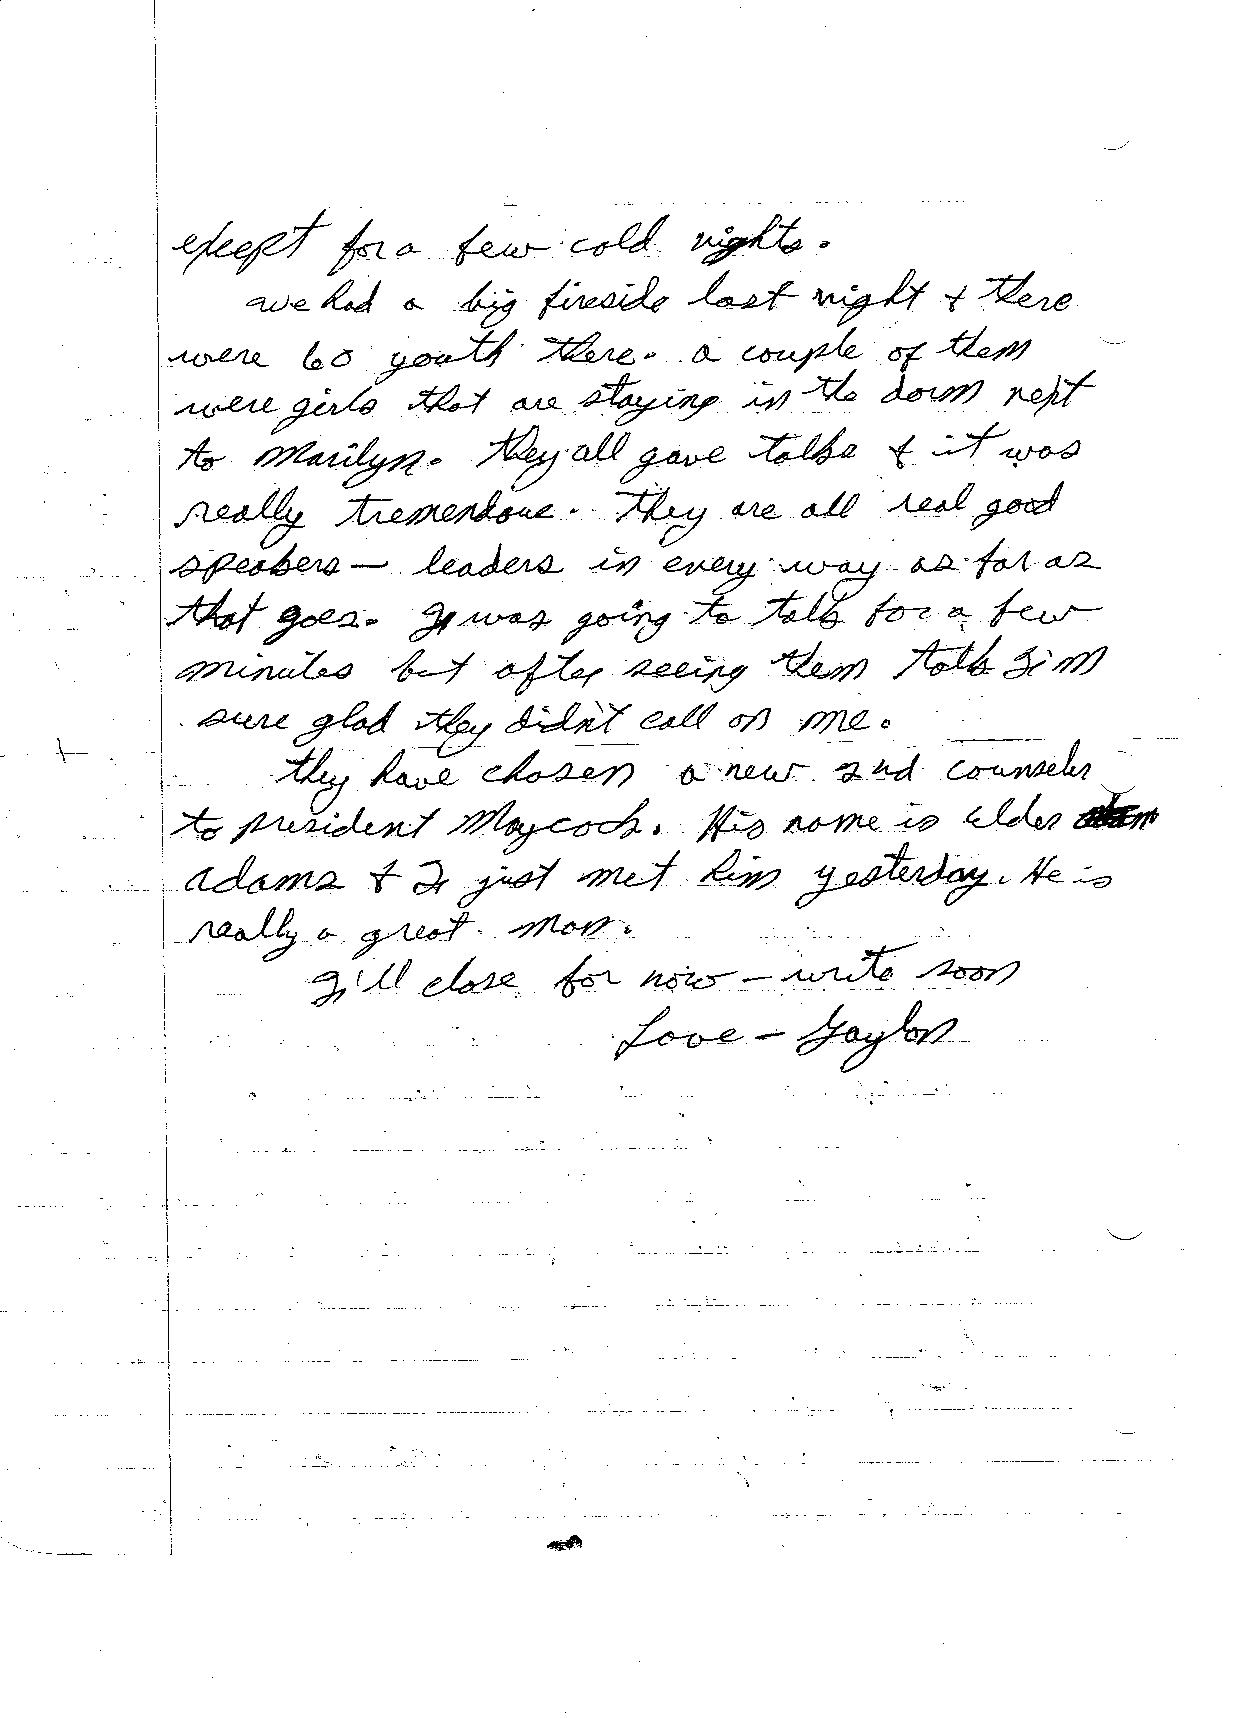 except for a few cold nights.
we had a big fireside last night & there
were 60 youth there. a couple of them
were girls that are staying in the dorm next
to Marilyn. They all gave talks & it was
really tremendous. They are all real good
speakers — leaders in every way as far as
that goes. I was going to talk for a few
minutes but after seeing them talk I'm
sure glad they didn't call on me.
they have chosen a new 2nd counseler
to president Maycock. His name is Elder
Adams & I just met him yesterday. He is
really a great man.
I'll close for now — write soon
Love — Gaylon